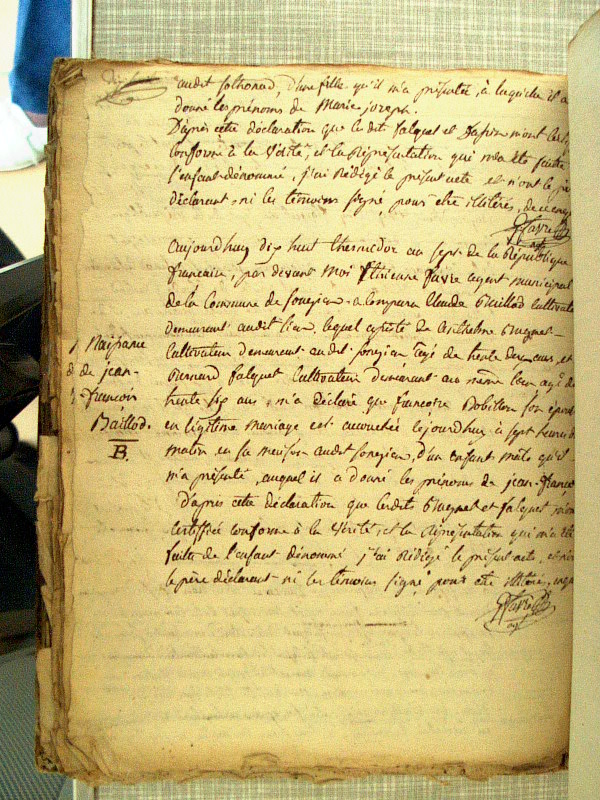 audit Solhonad, d'une fille qu'il m'a présentée, à laquelle il a
donné les prénoms de Marie joseph.
D'après cette déclaration que ledit falquet et m'ont certi
conforme à la Vérité, et la Représentation qui m'a été faitte
l'enfant dénommé, j'ai Rédigé le présent acte et n'ont le pè
déclarant, ni les temoins signé, pour être illitérés, de ce enq
Favre
agt
aujourd'huy dix huit thermidor an sept de la République
francaise, par devant Moi Etienne favre agent municipal
de la Commune de songieu a Comparu Claude Baillod Cultivate
demeurant audit lieu, lequel assisté de Anthelme Gugnet
Cultivateur demeurant audit songieu agé de trente deux ans, et
Bernard falquet Cultivateur demeurant au même lieu agé de
trente six ans, m'a déclaré que françoise Bobillon son épouse
en légitime mariage est accouchée cejourdhuy à sept heures d
matin en sa maison audit songieu, d'un enfant mâle qu'il
m'a présenté, auquel il a donné les prénoms de jean-franço
D'après cette déclaration que lesdits Gugnet et falquet m'ont
certifiée conforme à la Vérité, et la Représentation qui m'a été
faitte de l'enfant dénommé j'ai Rédigé le présent acte, et n'ont
le père déclarant ni les temoins signé, pour être illitérés, enqu
Favre
agt
Naissance
de jean-
françois
Baillod.
B.